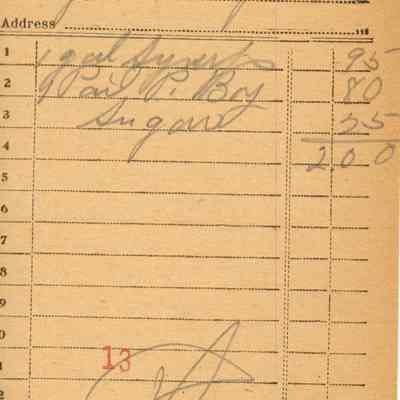 Address
1 1 gal Syrup 95
2 1 Pail P. Boy 80
3 Sugar 25
4 2.00
5
6
7
8
9
0
1
13
2